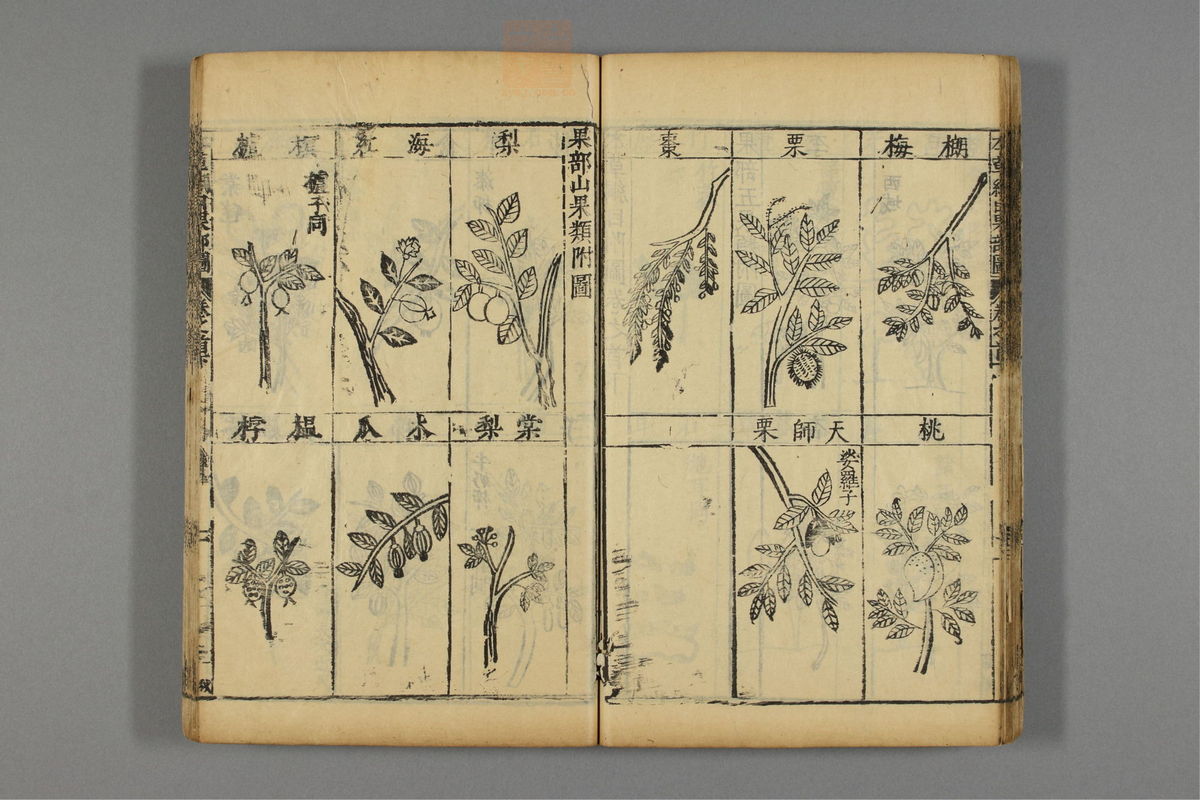 榔梅
栗
棗
桃
天師栗
娑羅子
果部山果類附圖
梨
海紅
榠樝
樝子同
棠梨
木瓜
榅桲